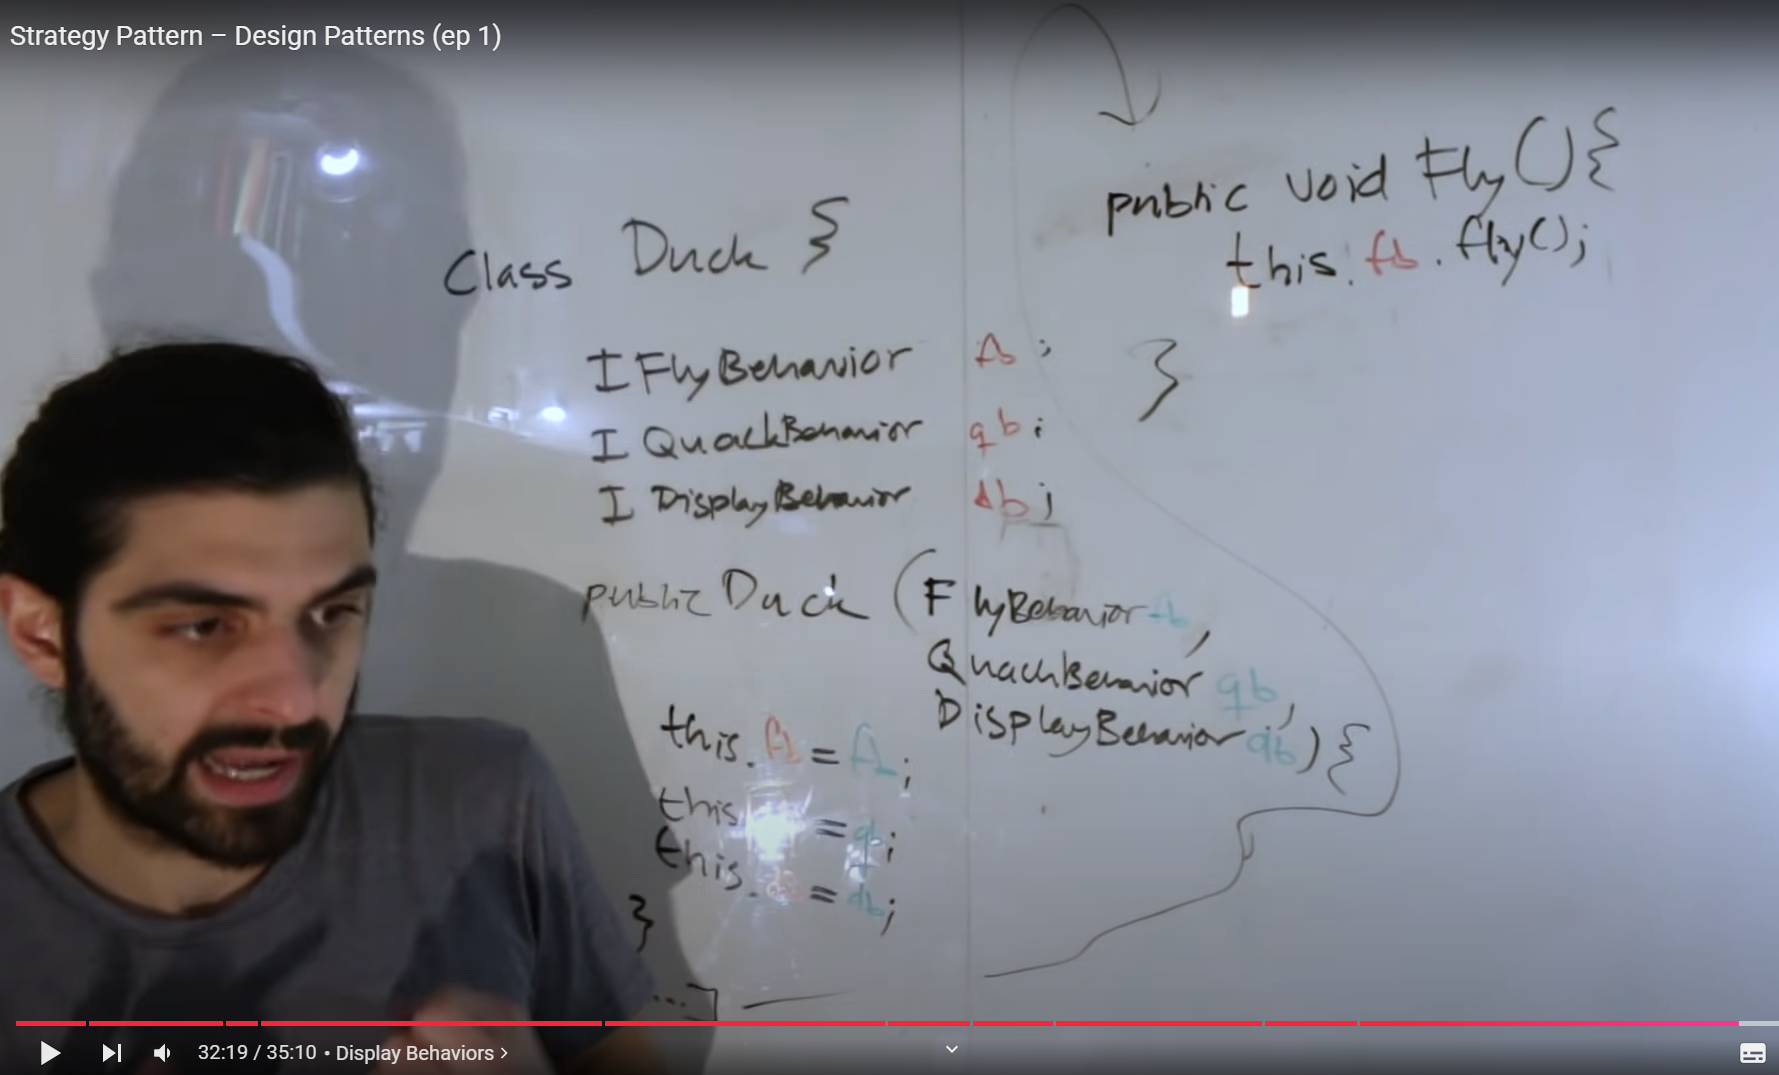 Strategy Pattern – Design Patterns (ep 1)
Class Duck {
IFlyBehavior fb;
I QuackBehavior qb;
I DisplayBehavior db;
public Duck (FlyBehavior fb,
QuackBehavior qb,
DisplayBehavior db) {
this.fb = fb;
this. = qb;
this.db = db;
}
...
public void Fly() {
this.fb.fly();
}
32:19 / 35:10 • Display Behaviors >